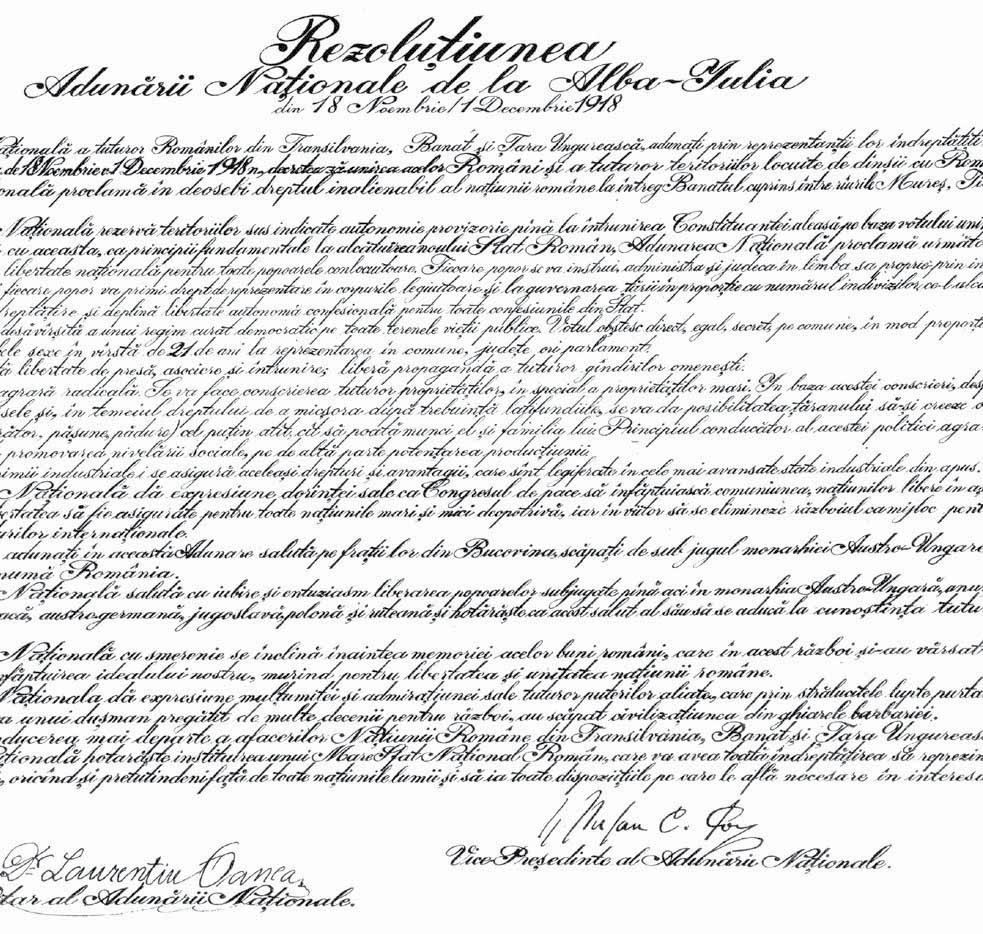 Rezoluțiunea
Adunării Naționale de la Alba-Iulia
din 18 Noembrie/1 Decembrie 1918
ațională a tuturor Românilor din Transilvania, Banat și Țara Ungurească, adunați prin reprezentanții lor îndreptățiți
de 18 Noembrie 1 Decembrie 1918, unirea acelor Români și a tuturor teritoriilor locuite de dînșii cu Rom
onală proclamă în deosebi dreptul inalienabil al națiunii române la întreg Banatul cuprins între rîurile Mureș, Ti
Națională rezervă teritoriilor sus indicate autonomie provizorie pînă la întrunirea Constituantei aleasă pe baza votului uni
cu aceasta, ca principii fundamentale la alcătuirea noului Stat Român, Adunarea Națională proclamă următo
libertate națională pentru toate popoarele conlocuitoare. Fiecare popor se va instrui, administra și judeca în limba sa proprie prin in
fiecare popor va primi drept de reprezentare în corpurile legiuitoare și la guvernarea țării în proporție cu numărul indivizilor, ce-l alcu
reptățire și deplină libertate autonomă confesională pentru toate confesiunile din Stat.
desăvîrșită a unui regim curat democratic pe toate terenele vieții publice. Votul obștesc direct, egal, secret, pe comune, în mod proporți
ele sexe în vîrstă de 21 de ani la reprezentarea în comune, județe ori parlament.
ă libertate de presă, asociere și întrunire; liberă propagandă a tuturor gîndirilor omenești.
agrară radicală. Se va face conscrierea tuturor proprietăților, în special a proprietăților mari. În baza acestei conscrieri, des
sele și, în temeiul dreptului de a micșora după trebuință latifundiile, se va da posibilitatea țăranului să-și creeze o
rător, pășune, pădure) cel puțin atît, cît să poată munci el și familia lui. Principiul conducător al acestei politici agra
promovarea nivelării sociale, pe de altă parte potențarea producțiunii.
rimii industriale i se asigură aceleași drepturi și avantagii, care sînt legiferate în cele mai avansate state industriale din apus.
Națională dă expresiune dorinței sale ca Congresul de pace să înfăptuiască comuniunea națiunilor libere în aș
ertatea să fie asigurate pentru toate națiunile mari și mici deopotrivă, iar în viitor să se elimineze războiul ca mijloc pent
urilor internaționale.
adunați în această Adunare salută pe frații lor din Bucovina, scăpați de sub jugul monarhiei Austro-Ungare
numă România.
Națională salută cu iubire și entuziasm liberarea popoarelor subjugate pînă aci în monarhia Austro-Ungară, anu
acă, austro-germană, jugoslavă, polonă și ruteană și hotărăște ca acest salut al său să se aducă la cunoștința tutu
Națională cu smerenie se înclină înaintea memoriei acelor buni români, care în acest război și-au vărsat
făptuirea idealului nostru, murind pentru libertatea și unitatea națiunii române.
Naționala dă expresiune mulțumitei și admirațiunei sale tuturor puterilor aliate, care prin strălucitele lupte purta
a unui dușman pregătit de multe decenii pentru război, au scăpat civilizațiunea din ghiarele barbariei.
ducerea mai departe a afacerilor Națiunii Române din Transilvania, Banat și Țara Ungureas
țională hotărăște instituirea unui Mare Sfat Național Român, care va avea toată îndreptățirea să reprezin
, oricînd și pretutindeni față de toate națiunile lumii și să ia toate dispozițiile pe care le află necesare în interesu
Ștefan C. Pop
Vice Președinte al Adunării Naționale.
Dr. Laurențiu Oanea
tar al Adunării Naționale.